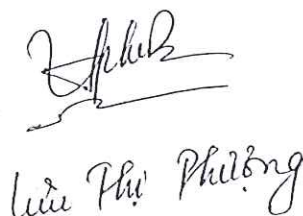 Lưu Thị Phượng